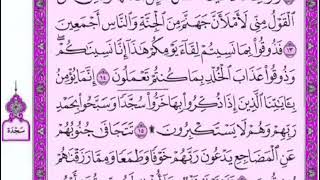 ٱلْقَوْلُ مِنِّى لَأَمْلَأَنَّ جَهَنَّمَ مِنَ ٱلْجِنَّةِ وَٱلنَّاسِ أَجْمَعِينَ
١٣ فَذُوقُوا۟ بِمَا نَسِيتُمْ لِقَآءَ يَوْمِكُمْ هَٰذَآ إِنَّا نَسِينَٰكُمْ ۖ
وَذُوقُوا۟ عَذَابَ ٱلْخُلْدِ بِمَا كُنتُمْ تَعْمَلُونَ ١٤ إِنَّمَا يُؤْمِنُ
بِـَٔايَٰتِنَا ٱلَّذِينَ إِذَا ذُكِّرُوا۟ بِهَا خَرُّوا۟ سُجَّدًا وَسَبَّحُوا۟ بِحَمْدِ
رَبِّهِمْ وَهُمْ لَا يَسْتَكْبِرُونَ ١٥ تَتَجَافَىٰ جُنُوبُهُمْ
عَنِ ٱلْمَضَاجِعِ يَدْعُونَ رَبَّهُمْ خَوْفًا وَطَمَعًا وَمِمَّا رَزَقْنَٰهُمْ
سَجْدَة